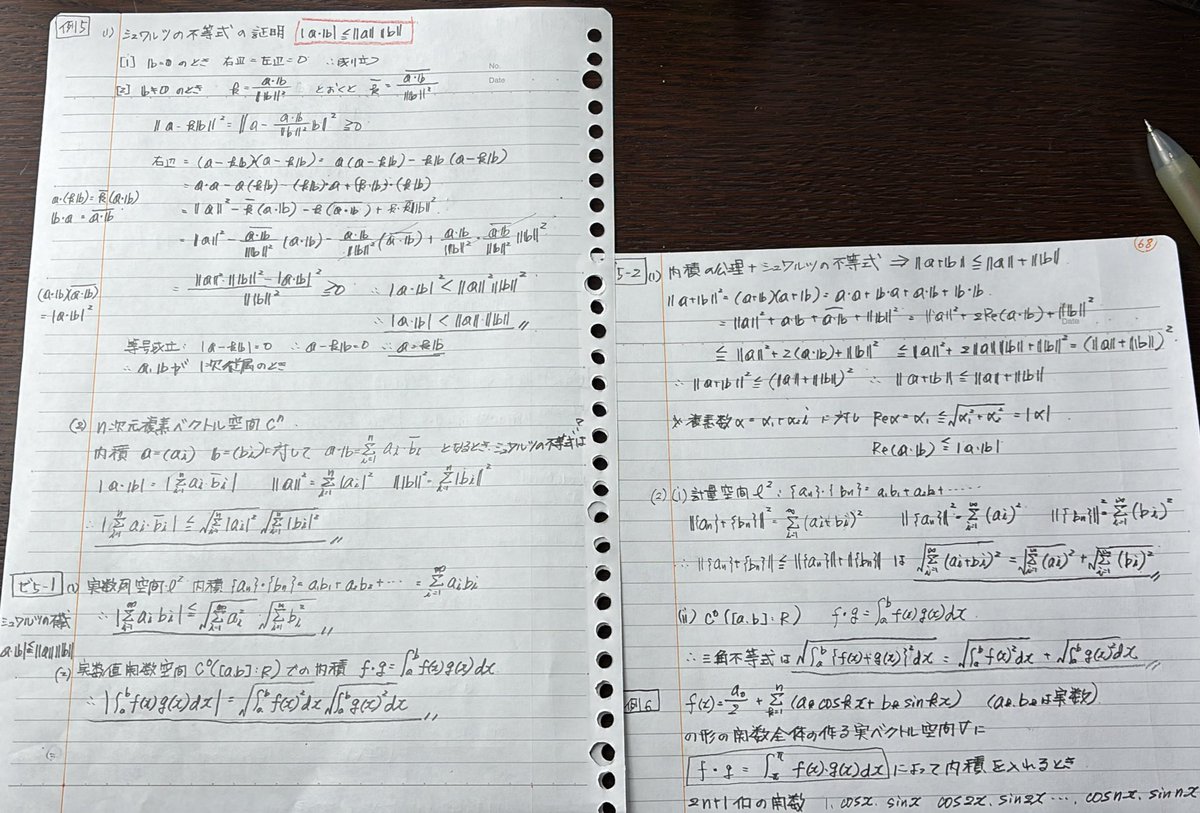 例5
(1) シュワルツの不等式の証明 |a・b|≦||a|| ||b||
[1] b=0のとき 右辺=左辺=0 ∴成り立つ
No.
Date
[2] b≠0のとき k=a・b/||b||² とおくと k̄=\overline{a・b}/||b||²
||a-kb||²=||a-(a・b/||b||²)b||²≧0
右辺=(a-kb)(a-kb)=a(a-kb)-kb(a-kb)
=a・a-a(kb)-(kb)・a+(k・b)・(kb)
a・(kb)=k̄(a・b)
b・a=\overline{a・b}
=||a||²-k̄(a・b)-k(\overline{a・b})+k・k̄||b||²
=||a||²-\overline{a・b}/||b||² (a・b)-a・b/||b||² (\overline{a・b})+a・b/||b||²・\overline{a・b}/||b||² ||b||²
=(||a||²・||b||²-|a・b|²)/||b||²≧0 ∴|a・b|²<||a||²||b||²
(a・b)(\overline{a・b})
=|a・b|²
∴|a・b|<||a||・||b||
等号成立: |a-kb|=0 ∴a-kb=0 ∴a=kb
∴a,bが1次従属のとき
(2) n次元複素ベクトル空間Cⁿ
内積 a=(ai) b=(bi)に対して a・b=Σ_{i=1}^{n} ai・b̄i となるとき シュワルツの不等式は?
|a・b|=|Σ_{i=1}^{n} ai b̄i| ||a||²=Σ_{i=1}^{n}|ai|² ||b||²=Σ_{i=1}^{n}|bi|²
∴|Σ_{i=1}^{n} ai・b̄i|≦√(Σ_{i=1}^{n}|ai|²) √(Σ_{i=1}^{n}|bi|²)
5-1 (1) 実数列空間ℓ² 内積{an}・{bn}=a₁b₁+a₂b₂+…=Σ_{i=1}^{∞} ai bi
∴|Σ_{i=1}^{∞} ai bi|≦√(Σ_{i=1}^{∞} ai²) √(Σ_{i=1}^{∞} bi²)
シュワルツの不等式
|a・b|≦||a|| ||b||
(2) 実数値関数空間C⁰([a,b]:R)での内積 f・g=∫ₐᵇf(x)g(x)dx
∴|∫ₐᵇf(x)g(x)dx|=√(∫ₐᵇf(x)²dx) √(∫ₐᵇg(x)²dx)
68
5-2 (1) 内積の公理+シュワルツの不等式⇒||a+b||≦||a||+||b||
||a+b||²=(a+b)(a+b)=a・a+b・a+a・b+b・b
=||a||²+a・b+\overline{a・b}+||b||²=||a||²+2Re(a・b)+||b||²
Date
≦||a||²+2(a・b)+||b||²≦||a||²+2||a||||b||+||b||²=(||a||+||b||)²
∴||a+b||²≦(||a||+||b||)² ∴||a+b||≦||a||+||b||
※複素数α=α₁+α₂iに対し Reα=α₁≦√(α₁²+α₂²)=|α|
Re(a・b)≦|a・b|
(2) (i) 計量空間ℓ²:{an}・{bn}=a₁b₁+a₂b₂+……
||{an}+{bn}||²=Σ_{i=1}^{∞}(ai+bi)² ||{an}||²=Σ_{i=1}^{∞}(ai)² ||{bn}||²=Σ_{i=1}^{∞}(bi)²
∴||{an}+{bn}||≦||{an}||+||{bn}||は √(Σ_{i=1}^{∞}(ai+bi)²)=√(Σ_{i=1}^{∞}(ai)²)+√(Σ_{i=1}^{∞}(bi)²)
(ii) C⁰([a,b]:R) f・g=∫ₐᵇf(x)g(x)dx
∴三角不等式は√(∫ₐᵇ{f(x)+g(x)}²dx)=√(∫ₐᵇf(x)²dx)+√(∫ₐᵇg(x)²dx)
例6 f(x)=a₀/2+Σ_{k=1}^{n}(ak coskx+bk sinkx) (ak,bkは実数)
の形の関数全体の作る実ベクトル空間Vに
f・g=∫f(x)・g(x)dx によって内積を入れるとき
2n+1個の関数 1, cosx, sinx, cos2x, sin2x…, cosnx, sinnx